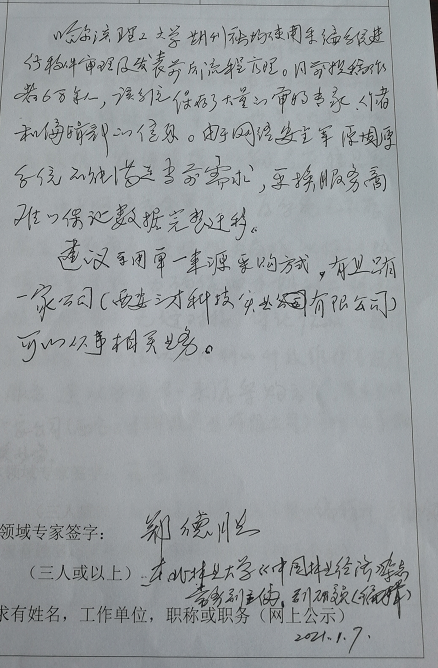 哈尔滨理工大学期刊社均使用采编系统进
行稿件审理及发表前后流程管理。目前投稿作
者6万余人,该系统保存了大量的审稿专家、作者
和编辑部的信息。由于网络安全等原因原
系统不能满足当前需求,更换服务商
难以保证数据完整迁移。
建议采用单一来源采购方式,有且只有
一家公司(西安三才科技实业有限公司)
可以从事相关业务。
领域专家签字: 郑德
(三人或以上) 东北林业大学《中国林业经济》杂志
常务副主编、副研究员(编辑)
求有姓名,工作单位,职称或职务(网上公示)
2021.1.7.